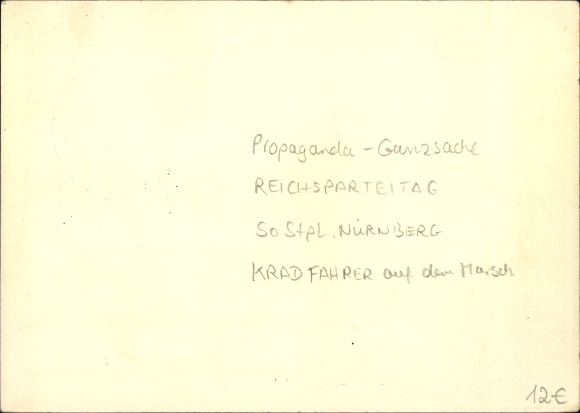 Propaganda - Ganzsache
REICHSPARTEITAG
SoStpl. NÜRNBERG
KRADFAHRER auf dem Marsch
12€